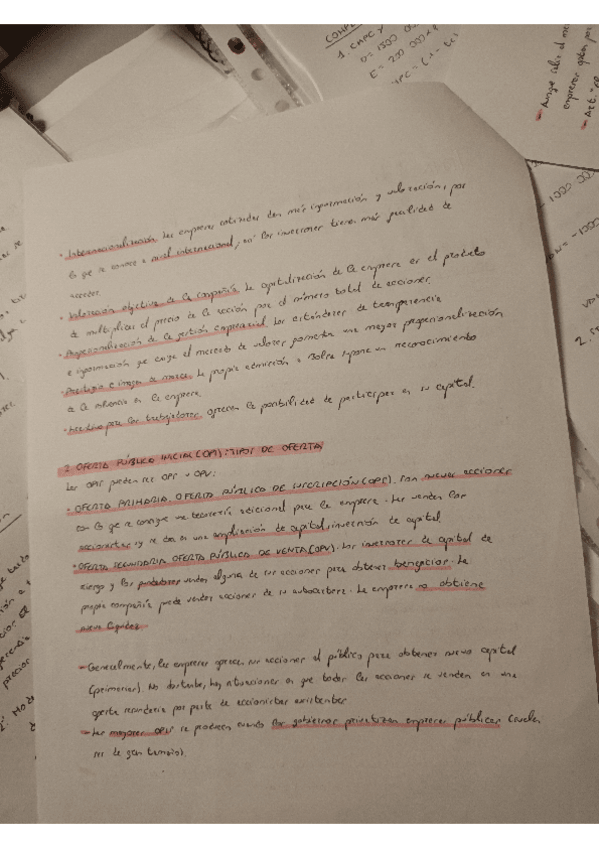 COMPL
1. CAPC Y
E = 200 000 x 9
empresas optan por
- Internacionalización. Las empresas cotizadas dan más información y valoración, por
lo que se conoce a nivel internacional, los inversores tienen más facilidad de
acceder.
- Valoración objetiva de la compañía. La capitalización de la empresa es el producto
de multiplicar el precio de la acción por el número total de acciones.
- Profesionalización de la gestión empresarial. Los estándares de transparencia
e información que exige el mercado de valores fomenta una mayor profesionalización
- Prestigio e imagen de marca. La propia admisión a Bolsa supone un reconocimiento
de la solvencia en la empresa.
- Incentivo para los trabajadores. ofrecen la posibilidad de participar en su capital.
2. OFERTA PÚBLICA INICIAL (OPI): TIPOS DE OFERTA
Las OPIs pueden ser OPS u OPV:
- OFERTA PRIMARIA. OFERTA PÚBLICO DE SUSCRIPCIÓN (OPS). Son nuevas acciones
con lo que se consigue una tesorería adicional para la empresa. Las venden los
accionistas y se da en una ampliación de capital, inversión de capital.
- OFERTA SECUNDARIA OFERTA PÚBLICO DE VENTA (OPV). Los inversores de capital de
riesgo y los fundadores venden alguna de sus acciones para obtener beneficios. La
propia compañía puede vender acciones de su autocartera. La empresa no obtiene
nueva liquidez.
- Generalmente, las empresas ofrecen sus acciones al público para obtener nuevo capital
(primarias). No obstante, hay situaciones en que todas las acciones se venden en una
oferta secundaria por parte de accionistas existentes
- Las mayores OPVs se producen cuando los gobiernos privatizan empresas públicas (suelen
ser de gran tamaño).